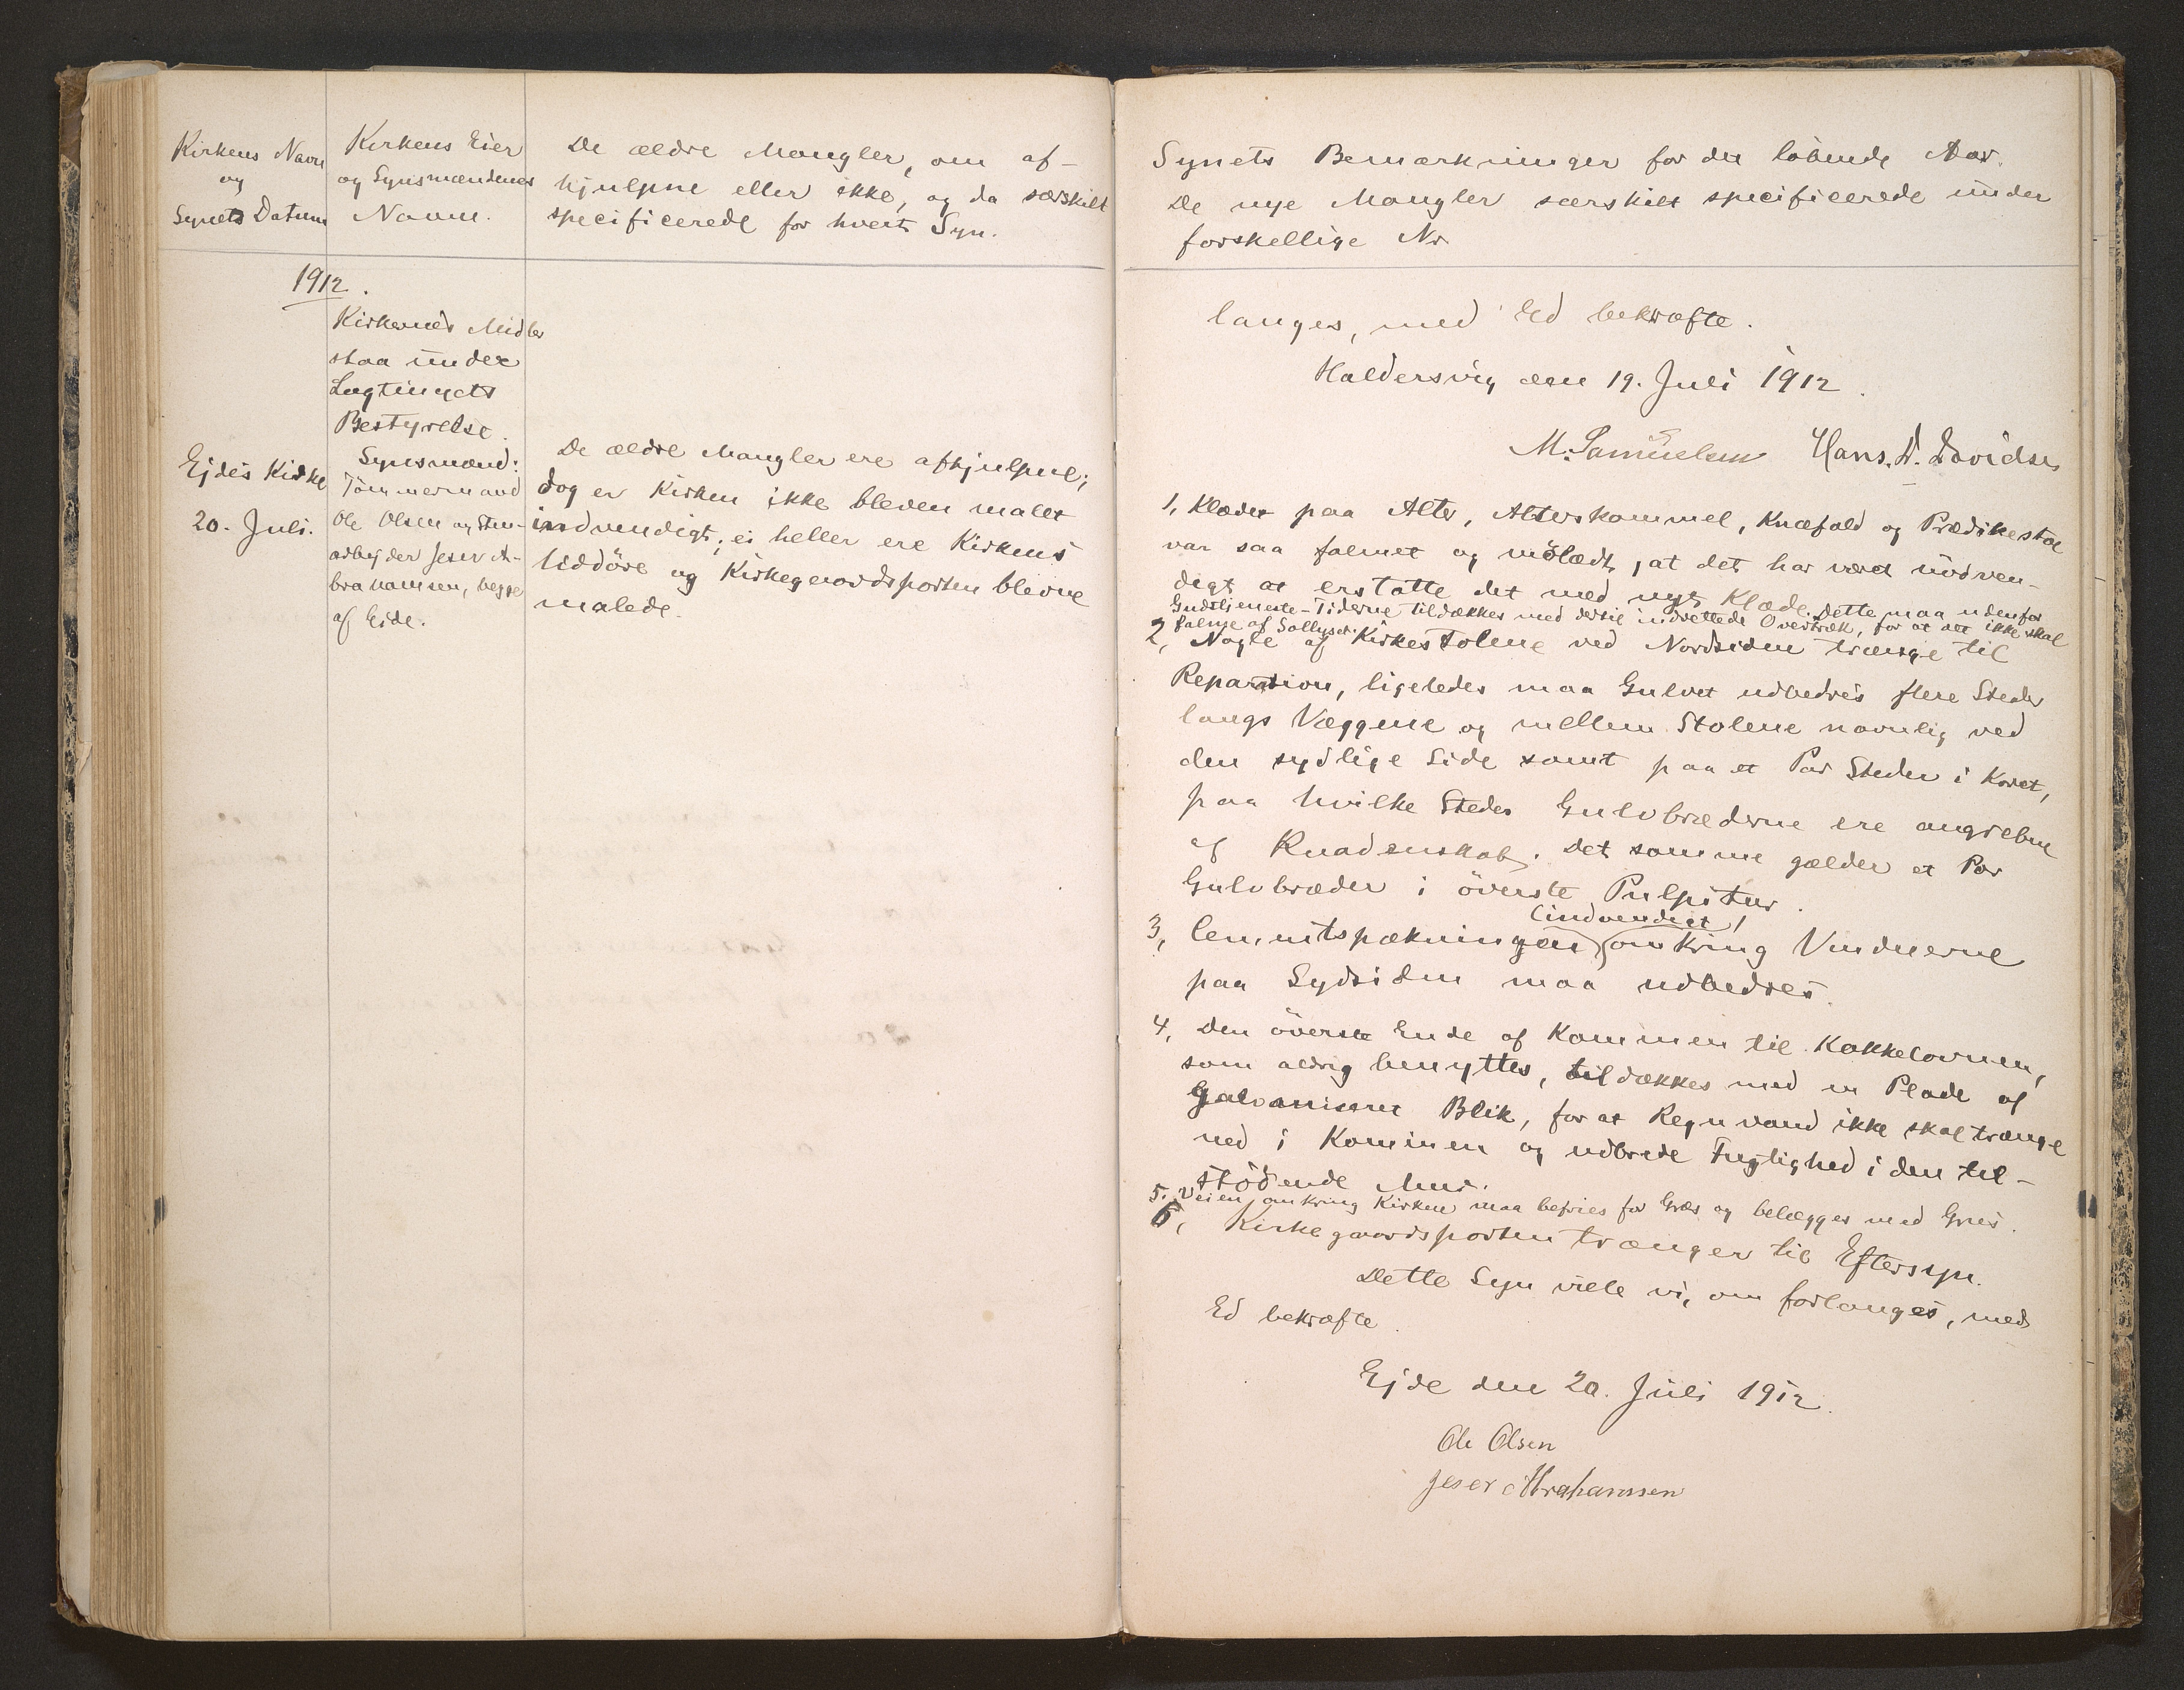 Kirkens Navn
og
Synets Datum
Kirkens Eier
og Synsmændenes
Navne.
De ældre Mangler, om af-
hjulpne eller ikke, og da særskilt
specificerede for hvert Syn.
1912.
Kirkernes Midler
staa under
Lagtingets
Bestyrelse.
Ejdes Kirke
20. Juli.
Synsmænd:
Tömmermand
Ole Olsen og Sten-
arbejder Jeser A-
brahamsen, begge
af Eide.
De ældre Mangler ere afhjulpne;
dog er Kirken ikke bleven malet
indvendigt; ei heller ere Kirkens
Siddöre og Kirkegaardsporten blevne
malede.
Synets Bemærkninger for det löbende Aar.
De nye Mangler særskilt specificerede under
forskellige Nr
langes, med Ed bekræfte.
Haldersvig den 19. Juli 1912.
M. Samuelsen Hans. D. Davidsen
1, Klædet paa Alter, Alterskammel, Knæfald og Prædikestol
var saa falmet og mölædt, at det har været nödven-
digt at erstatte det med nyt Klæde. Dette maa udenfor
Gudstjeneste-Tiderne tildækkes med dertil indrettede Overtræk, for at det ikke skal
falme af Sollyset.
2, Nogle af Kirkestolene ved Nordsiden trænge til
Reparation, ligeledes maa Gulvet udbedres flere Steder
langs Væggene og mellem Stolene navnlig ved
den sydlige Side samt paa et Par Steder i Koret,
paa hvilke Steder Gulvbræderne ere angrebne
af Knadenskab. Det samme gælder et Par
Gulvbræder i överste Pulpitur.
(indvendigt)
3, Cementspækningen omkring Vinduerne
paa Sydsiden maa udbedres.
4, Den överste Ende af Kaminen til Kakkelovnen,
som aldrig benyttes, tildækkes med en Plade af
galvaniseret Blik, for at Regnvand ikke skal trænge
ned i Kaminen og udbrede Fugtighed i den til-
stödende Mur.
5. Veien omkring Kirken maa befries for Græs og belægges med Grus.
6, Kirkegaardsporten trænger til Eftersyn.
Dette Syn ville vi, om forlanges, med
Ed bekræfte.
Ejde den 20. Juli 1912.
Ole Olsen
Jeser Abrahamsen